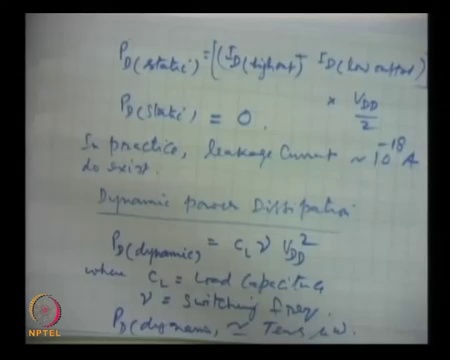 P_D(static) = [(I_D(highout) - I_D(low output)]
× V_DD/2
P_D(static) = 0.
In practice, leakage current ~ 10^-18 A
do exist.
Dynamic power Dissipation
P_D(dynamic) = C_L ν V_DD^2
where C_L = Load Capacitance
ν = Switching freq.
P_D(dynamic) ≃ Tens μW.
NPTEL